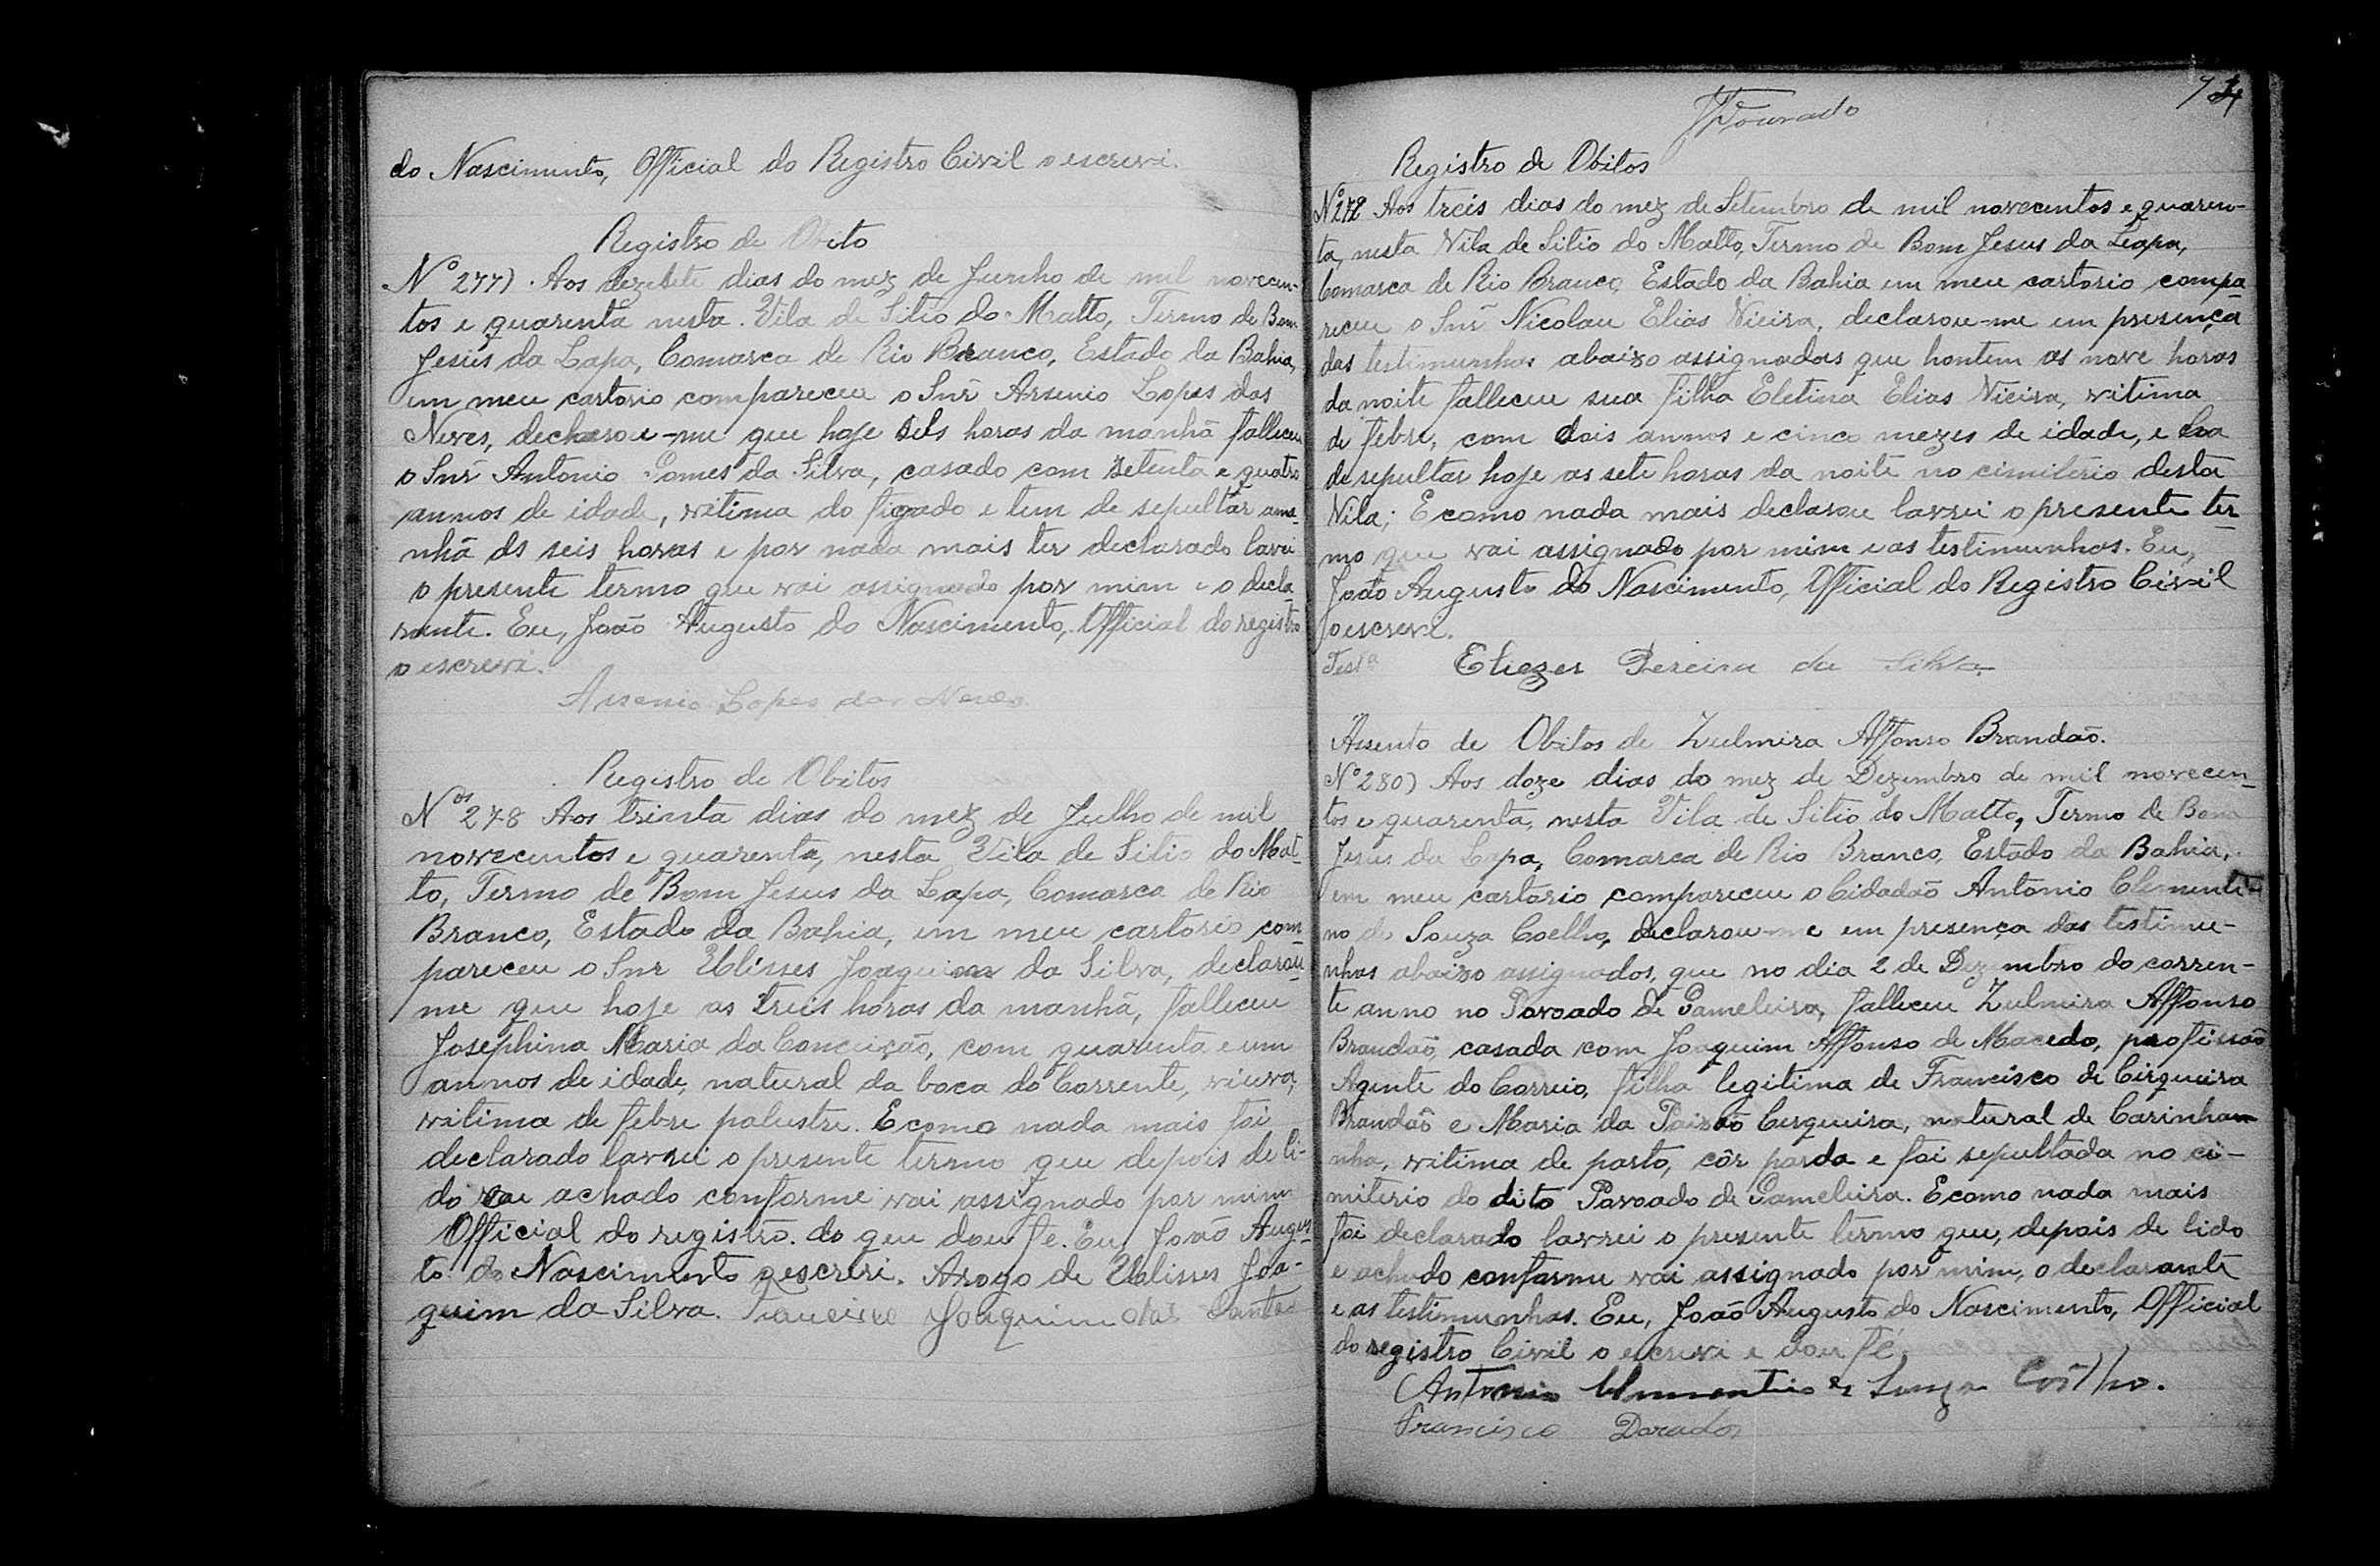 do Nascimento, Official do Registro Civil o escrevi.
Registro de Obito
Nº 277) . Aos dezesete dias do mez de Junho de mil novecen-
tos e quarenta nesta Vila de Sitio do Matto, Termo de Bom
Jesus da Lapa, Comarca de Rio Branco, Estado da Bahia,
em meu cartorio compareceu o Snr Arsenio Lopes das
Neves, declarou-me que hoje seis horas da manhã falleceu
o Snr Antonio Gomes da Silva, casado com setenta e quatro
annos de idade, vitima do figado e tem de sepultar ama-
nhã ás seis horas e por nada mais ter declarado lavrei
o presente termo que vai assignado por mim e o decla-
rante. Eu, João Augusto do Nascimento, Official do registro
o escrevi.
Arsenio Lopes das Neves
Registro de Obitos
Nos 278 Aos trinta dias do mez de Julho de mil
novecentos e quarenta, nesta Vila de Sitio do Mat-
to, Termo de Bom Jesus da Lapa, Comarca de Rio
Branco, Estado da Bahia, em meu cartorio com-
pareceu o Snr Ulisses Joaquim da Silva, declarou-
me que hoje as treis horas da manhã, falleceu
Josephina Maria da Conceição, com quarenta e um
annos de idade, natural da boca do Corrente, viuva,
vitima de febre palustre. E como nada mais foi
declarado lavrei o presente termo que depois de li-
do achado conforme vai assignado por mim
Official do registro. do que dou fé. Eu, João Augus-
to do Nascimento o escrevi. Arogo de Ulisses Joa-
quim da Silva. Joaquim dos Santos
74
Dourado
Registro de Obitos
Nº 279 Aos treis dias do mez de Setembro de mil novecentos e quaren-
ta, nesta Vila de Sitio do Matto, Termo de Bom Jesus da Lapa,
Comarca de Rio Branco, Estado da Bahia em meu cartorio compa-
receu o Snr Nicolau Elias Vieira, declarou-me em presença
das testimunhas abaixo assignadas que hontem as nove horas
da noite falleceu sua filha Eletina Elias Vieira, vitima
de febre, com dois annos e cinco mezes de idade, e
de sepultar hoje as sete horas da noite no cimiterio desta
Vila; E como nada mais declarou lavrei o presente ter-
mo que vai assignado por mim e as testimunhas. Eu,
João Augusto do Nascimento, Official do Registro Civil
o escrevi.
Testa Eliezer Pereira da Silva
Assento de Obitos de Zulmira Affonso Brandão.
Nº 280) Aos doze dias do mez de Dezembro de mil novecen-
tos e quarenta, nesta Vila de Sitio do Matto, Termo de Bom
Jesus da Lapa, Comarca de Rio Branco, Estado da Bahia,
em meu cartorio compareceu o Cidadão Antonio Clementi-
no de Souza Coelho, declarou-me em presença das testimu-
nhas abaixo assignados, que no dia 2 de Dezembro do corren-
te anno no Povoado de Gameleira, falleceu Zulmira Affonso
Brandão, casada com Joaquim Affonso de Macedo, profissão
Agente do Correio, filha legitima de Francisco de Cirqueira
Brandão e Maria da Paixão Cerqueira, natural de Carinha-
nha, vitima de parto, côr parda e foi sepultada no ci-
miterio do dito Povoado de Gameleira. E como nada mais
foi declarado lavrei o presente termo que, depois de lido
e achado conforme vai assignado por mim, o declarante
e as testimunhas. Eu, João Augusto do Nascimento, Official
do registro Civil o escrevi e dou fé.
Antonio Clementino de Souza Coelho.
Francisco Dorado